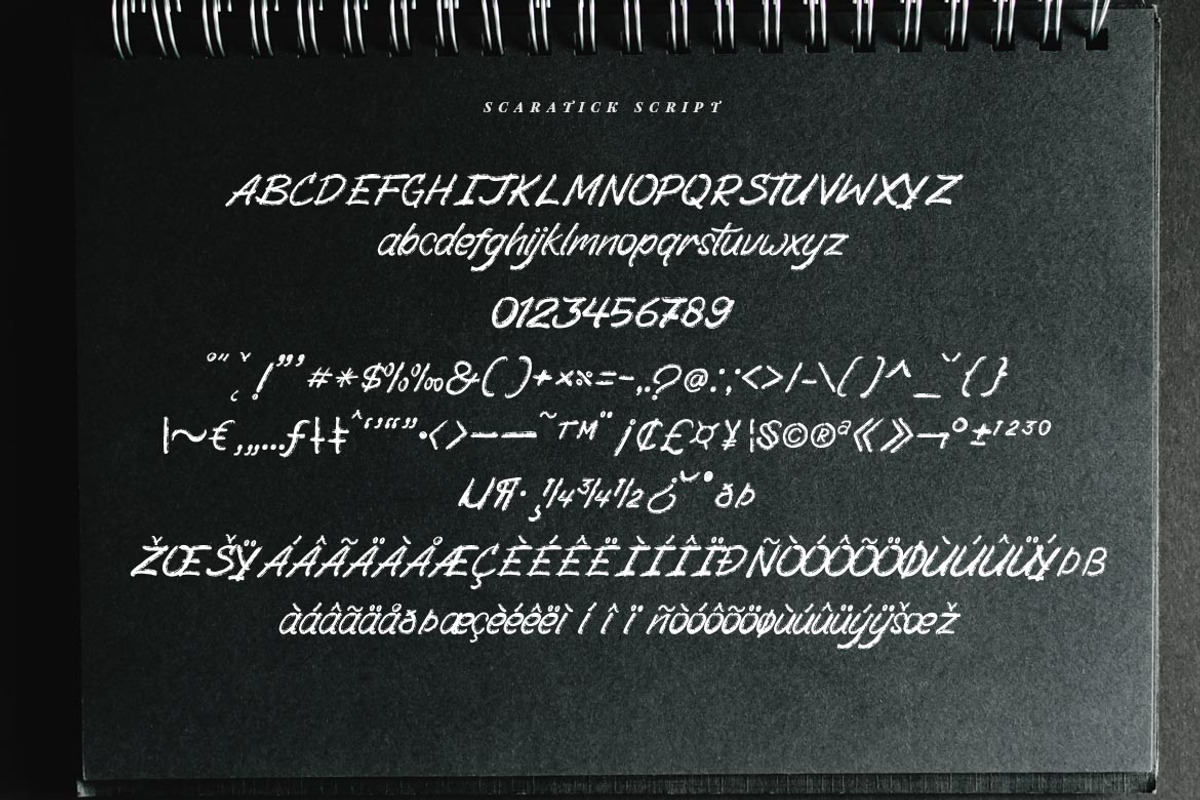 SCARATICK SCRIPT
ABCDEFGHIJKLMNOPQRSTUVWXYZ
abcdefghijklmnopqrstuvwxyz
0123456789
°"ˇ¸!"'#*$%‰&()+×%=-,.?@:;<>/-\()^_˘{}
|~€‚„…ƒ†‡ˆ‘’“”•‹›–—˜™¨¡¢£¤¥¦§©®ª«»¬°±¹²³º
µ¶·¸¼¾½¿˘˙ðþ
ŽŒŠŸÁÂÃÄÀÅÆÇÈÉÊËÌÍÎÏÐÑÒÓÔÕÖØÙÚÛÜÝÞß
àáâãäåðþæçèéêëìíîïñòóôõöøùúûüýÿšœž